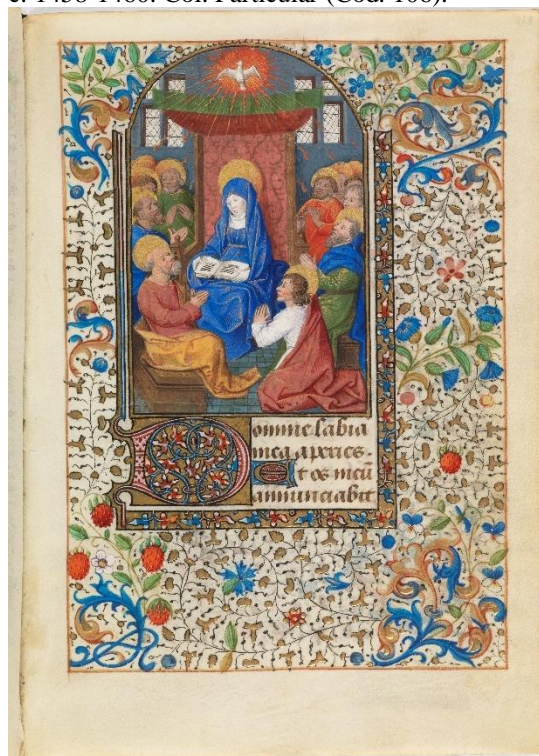 c. 1458-1460. Col. Particular (Cod. 108).
Domine labia
mea aperies.
Et os meū
annunciabit